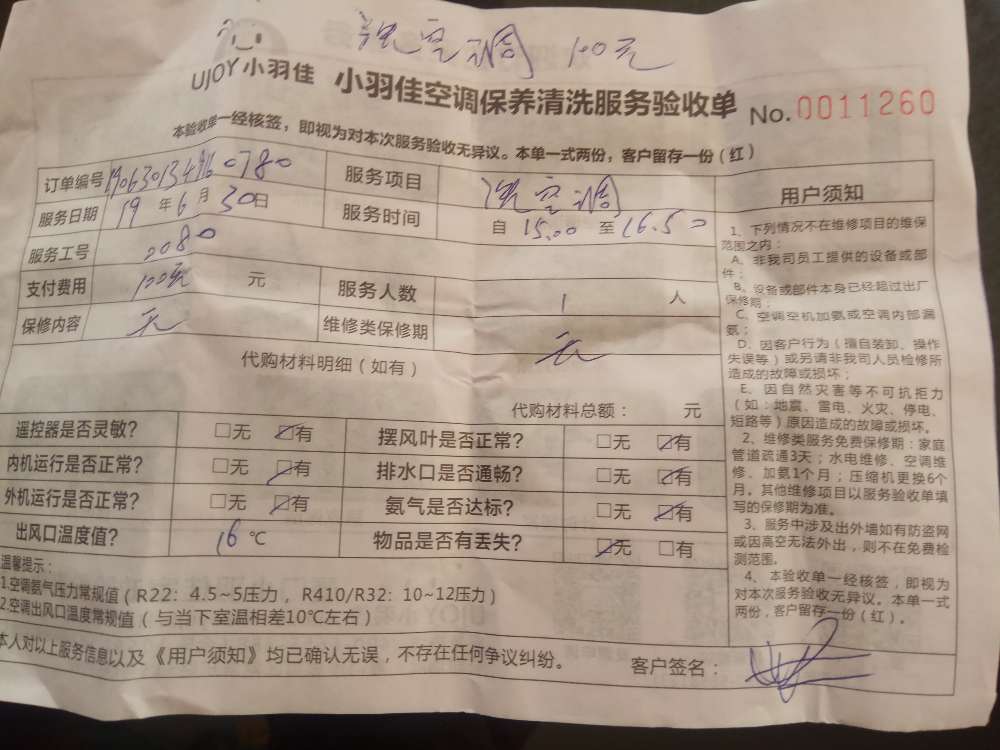 洗空调 100元
UJOY 小羽佳 小羽佳空调保养清洗服务验收单 No.0011260
本验收单一经核签，即视为对本次服务验收无异议。本单一式两份，客户留存一份（红）
订单编号 服务项目 洗空调
服务日期 19 年 6 月 30 日 服务时间 自 15.00 至 16.50
服务工号 0080
支付费用 100元 元 服务人数 1 人
保修内容 无 维修类保修期 无
代购材料明细（如有）
代购材料总额： 元
遥控器是否灵敏？ □无 ☑有 摆风叶是否正常？ □无 ☑有
内机运行是否正常？ □无 ☑有 排水口是否通畅？ □无 ☑有
外机运行是否正常？ □无 ☑有 氨气是否达标？ □无 ☑有
出风口温度值？ 16 ℃ 物品是否有丢失？ ☑无 □有
温馨提示：
1.空调氨气压力常规值（R22：4.5~5压力，R410/R32：10~12压力）
2.空调出风口温度常规值（与当下室温相差10℃左右）
本人对以上服务信息以及《用户须知》均已确认无误，不存在任何争议纠纷。 客户签名：
用户须知
1、下列情况不在维修项目的维保
范围之内：
A、非我司员工提供的设备或部
件；
B、设备或部件本身已经超过出厂
保修期；
C、空调空机加氨或空调内部漏
氨；
D、因客户行为（擅自装卸、操作
失误等）或另请非我司人员检修所
造成的故障或损坏；
E、因自然灾害等不可抗拒力
（如：地震、雷电、火灾、停电、
短路等）原因造成的故障或损坏。
2、维修类服务免费保修期：家庭
管道疏通3天；水电维修、空调维
修、加氨1个月；压缩机更换6个
月。其他维修项目以服务验收单填
写的保修期为准。
3、服务中涉及出外墙如有防盗网
或因高空无法外出，则不在免费检
测范围。
4、本验收单一经核签，即视为
对本次服务验收无异议。本单一式
两份，客户留存一份（红）。